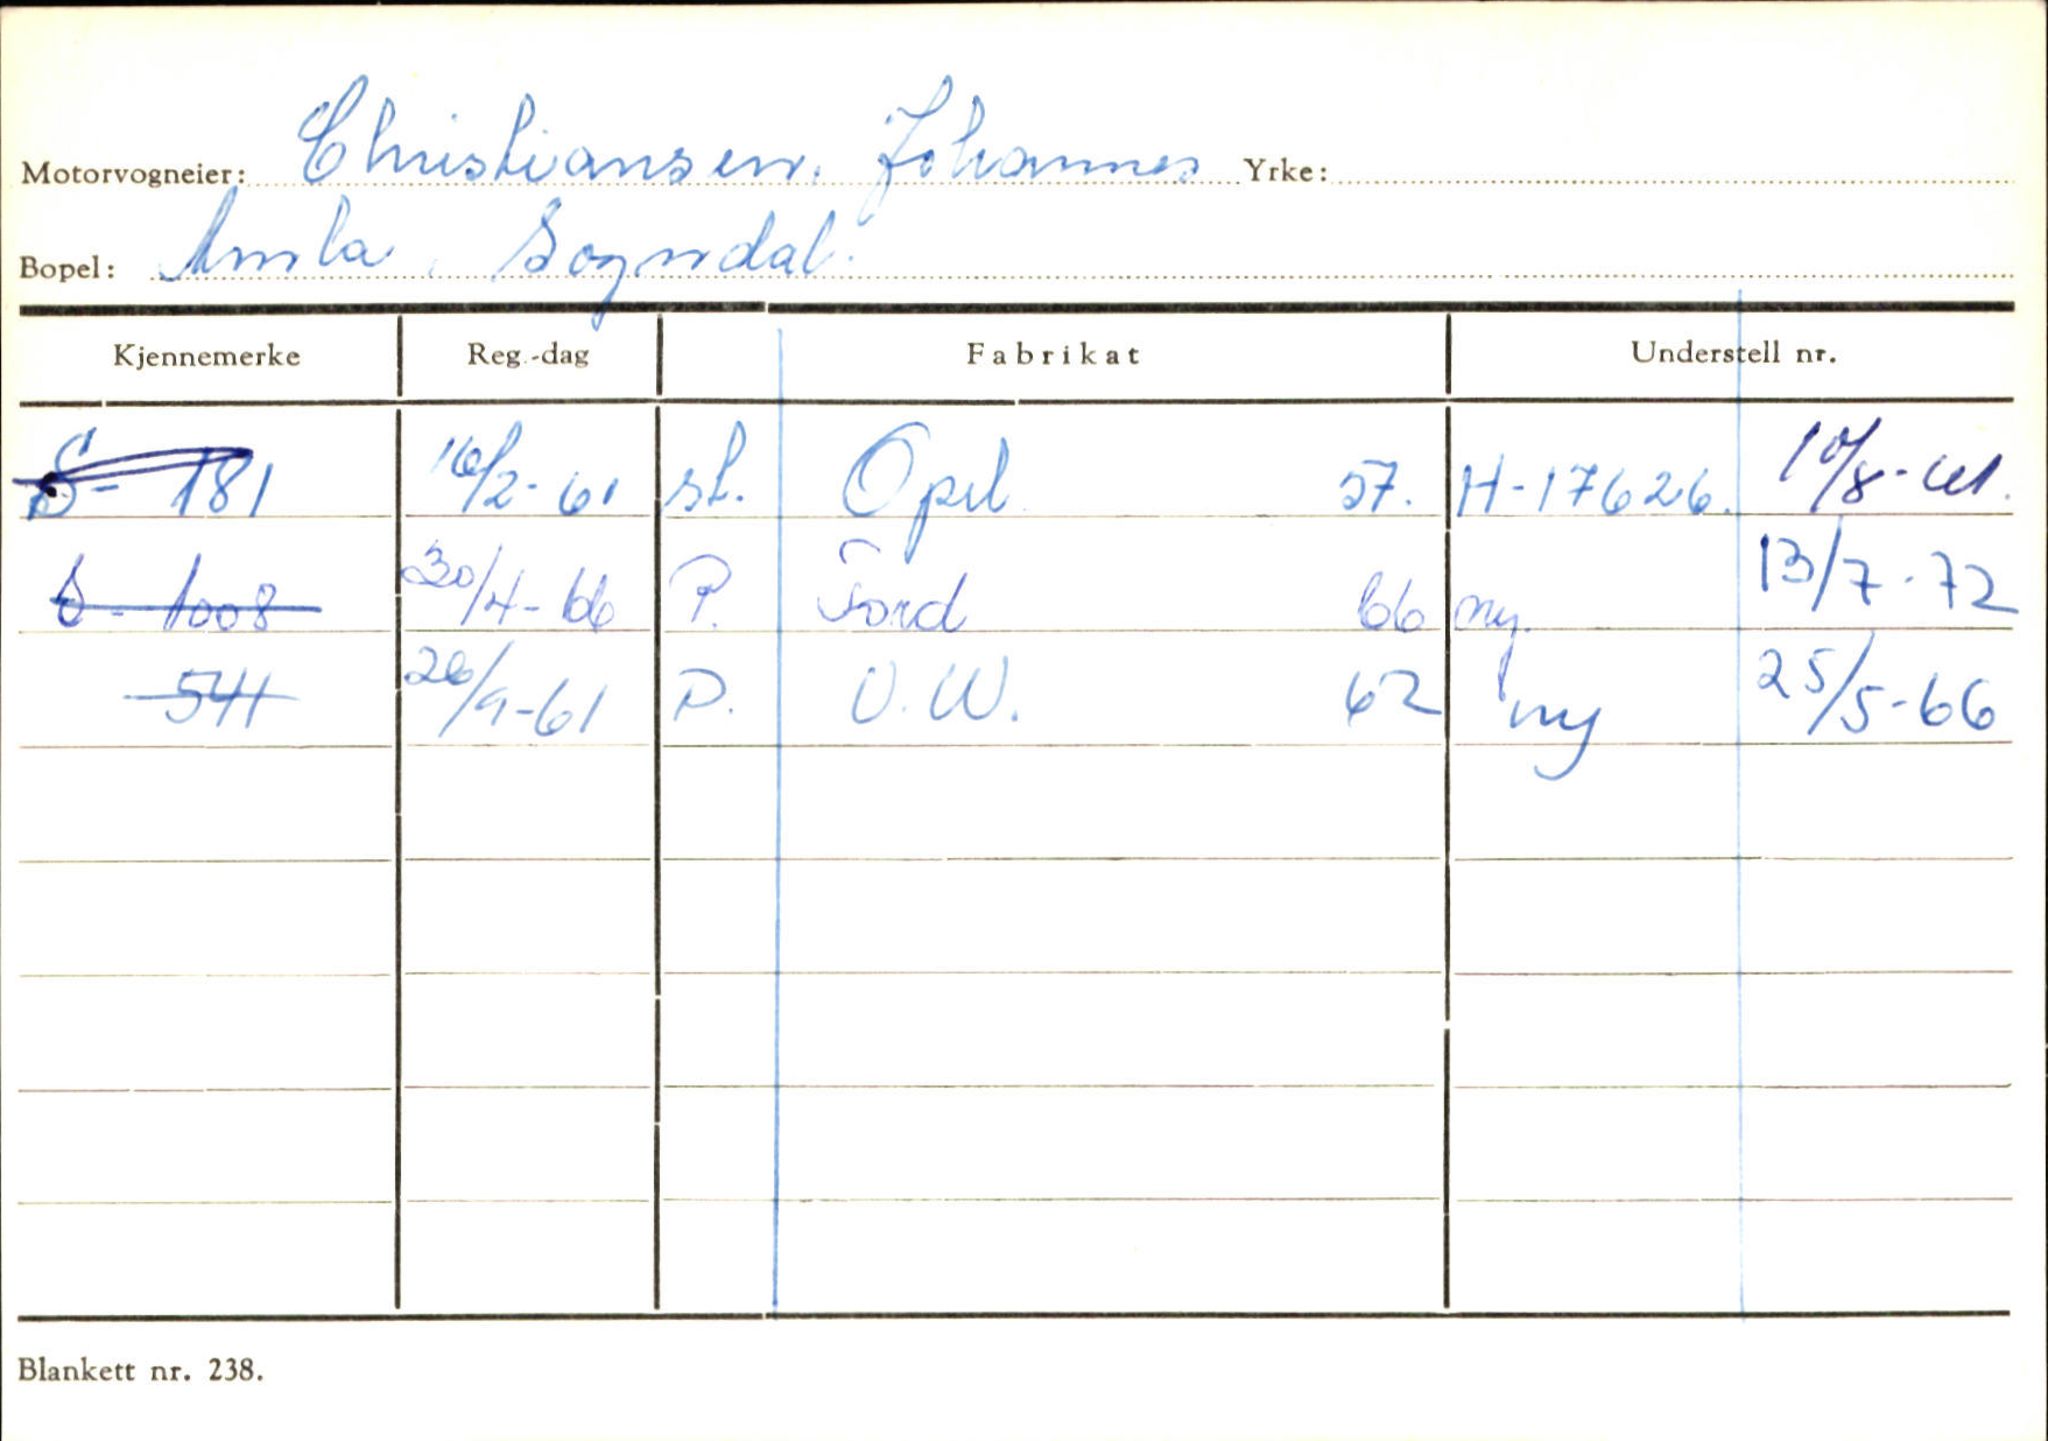 Motorvogneier: Christiansen, Johannes Yrke:
Bopel: Amla, Sogndal.
Kjennemerke Reg.-dag Fabrikat Understell nr.
S- 181 16/2-61 st. Opel 57. H-17626. 10/8-61.
S- 1008 30/4-66 P. Ford 66 ny. 13/7-72
541 26/9-61 P. V.W. 62 ny 25/5-66
Blankett nr. 238.